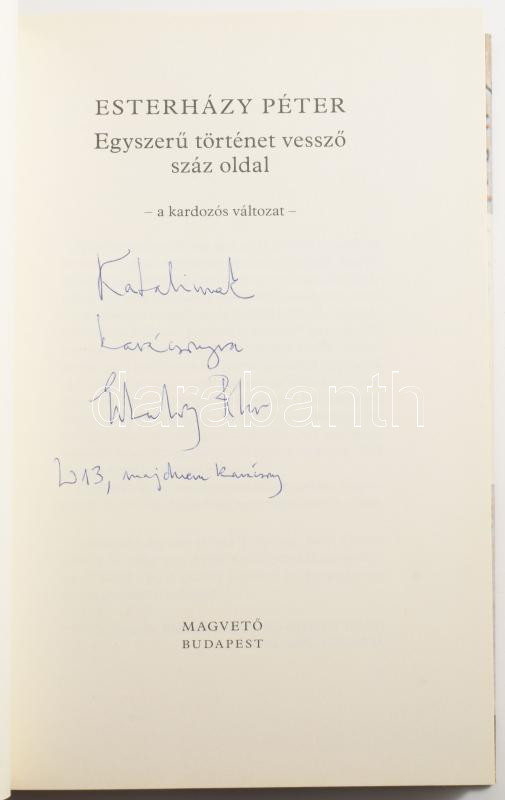 ESTERHÁZY PÉTER
Egyszerű történet vessző
száz oldal
– a kardozós változat –
Katalinnak
karácsonyra
Esterházy Péter
darabanth
2013, majdnem karácsony
MAGVETŐ
BUDAPEST